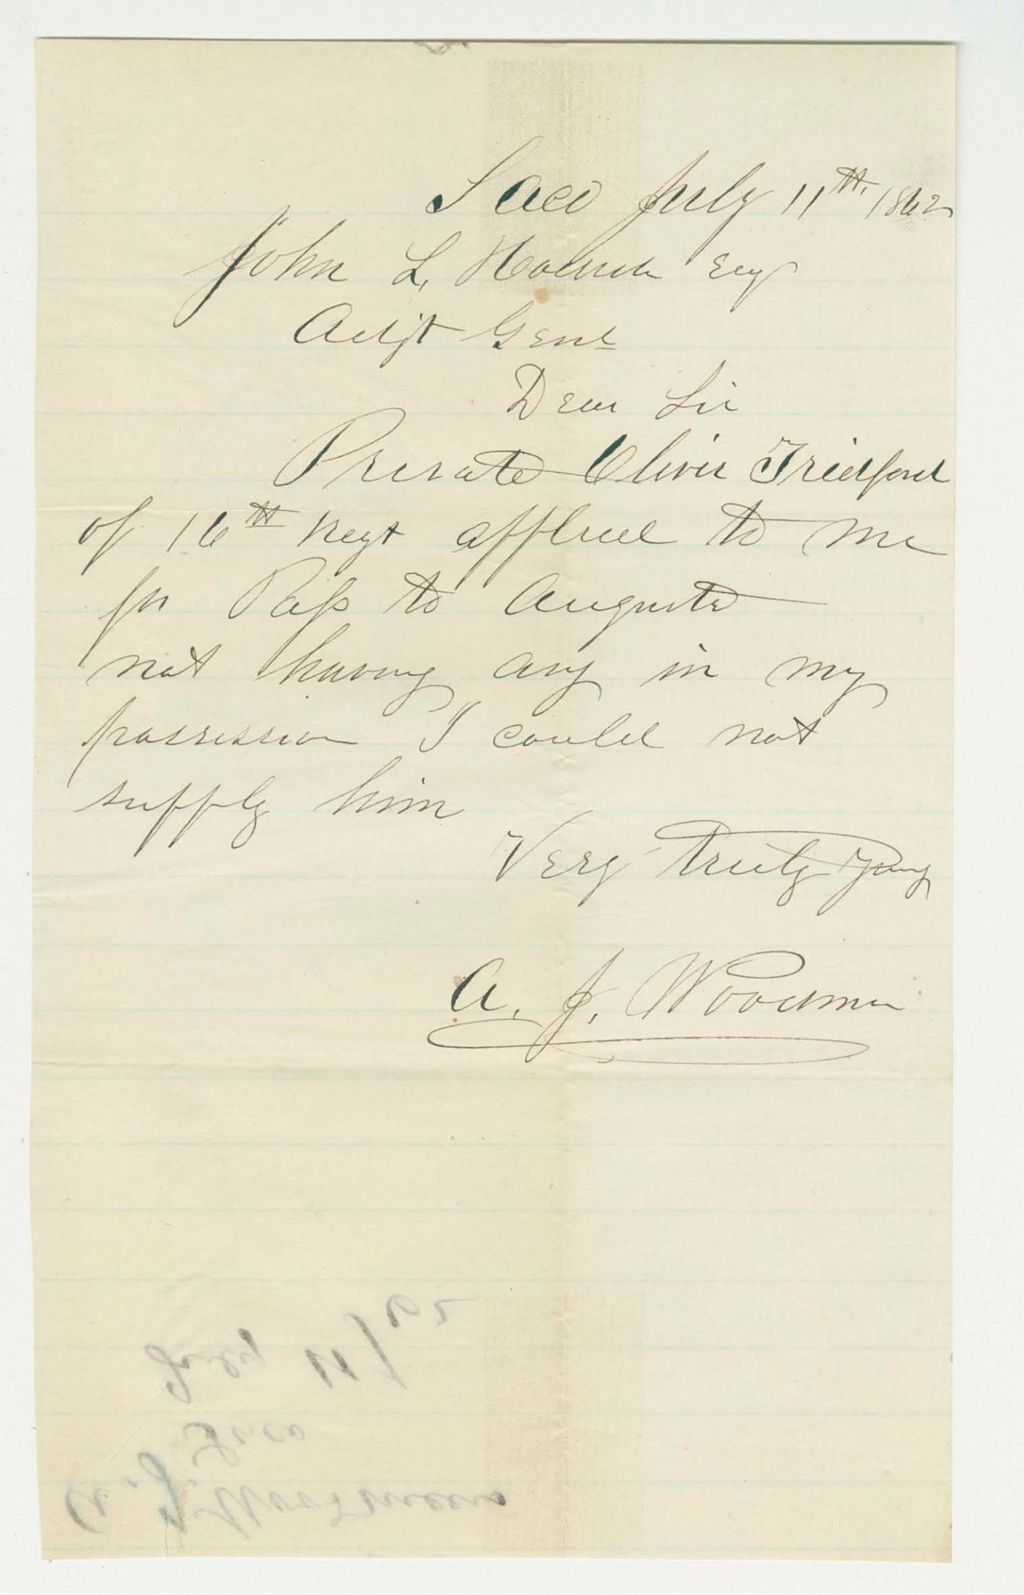 Saco July 11th, 1862
John L. Hodsdon Esq
Adjt Genl
Dear Sir
Private Oliver
of 16th Regt applied to me
for Pass to Augusta
not having any in my
possession I could not
supply him
Very truly Yours
A. J. Woodman
A. J. Woodman
Saco
July 11/62